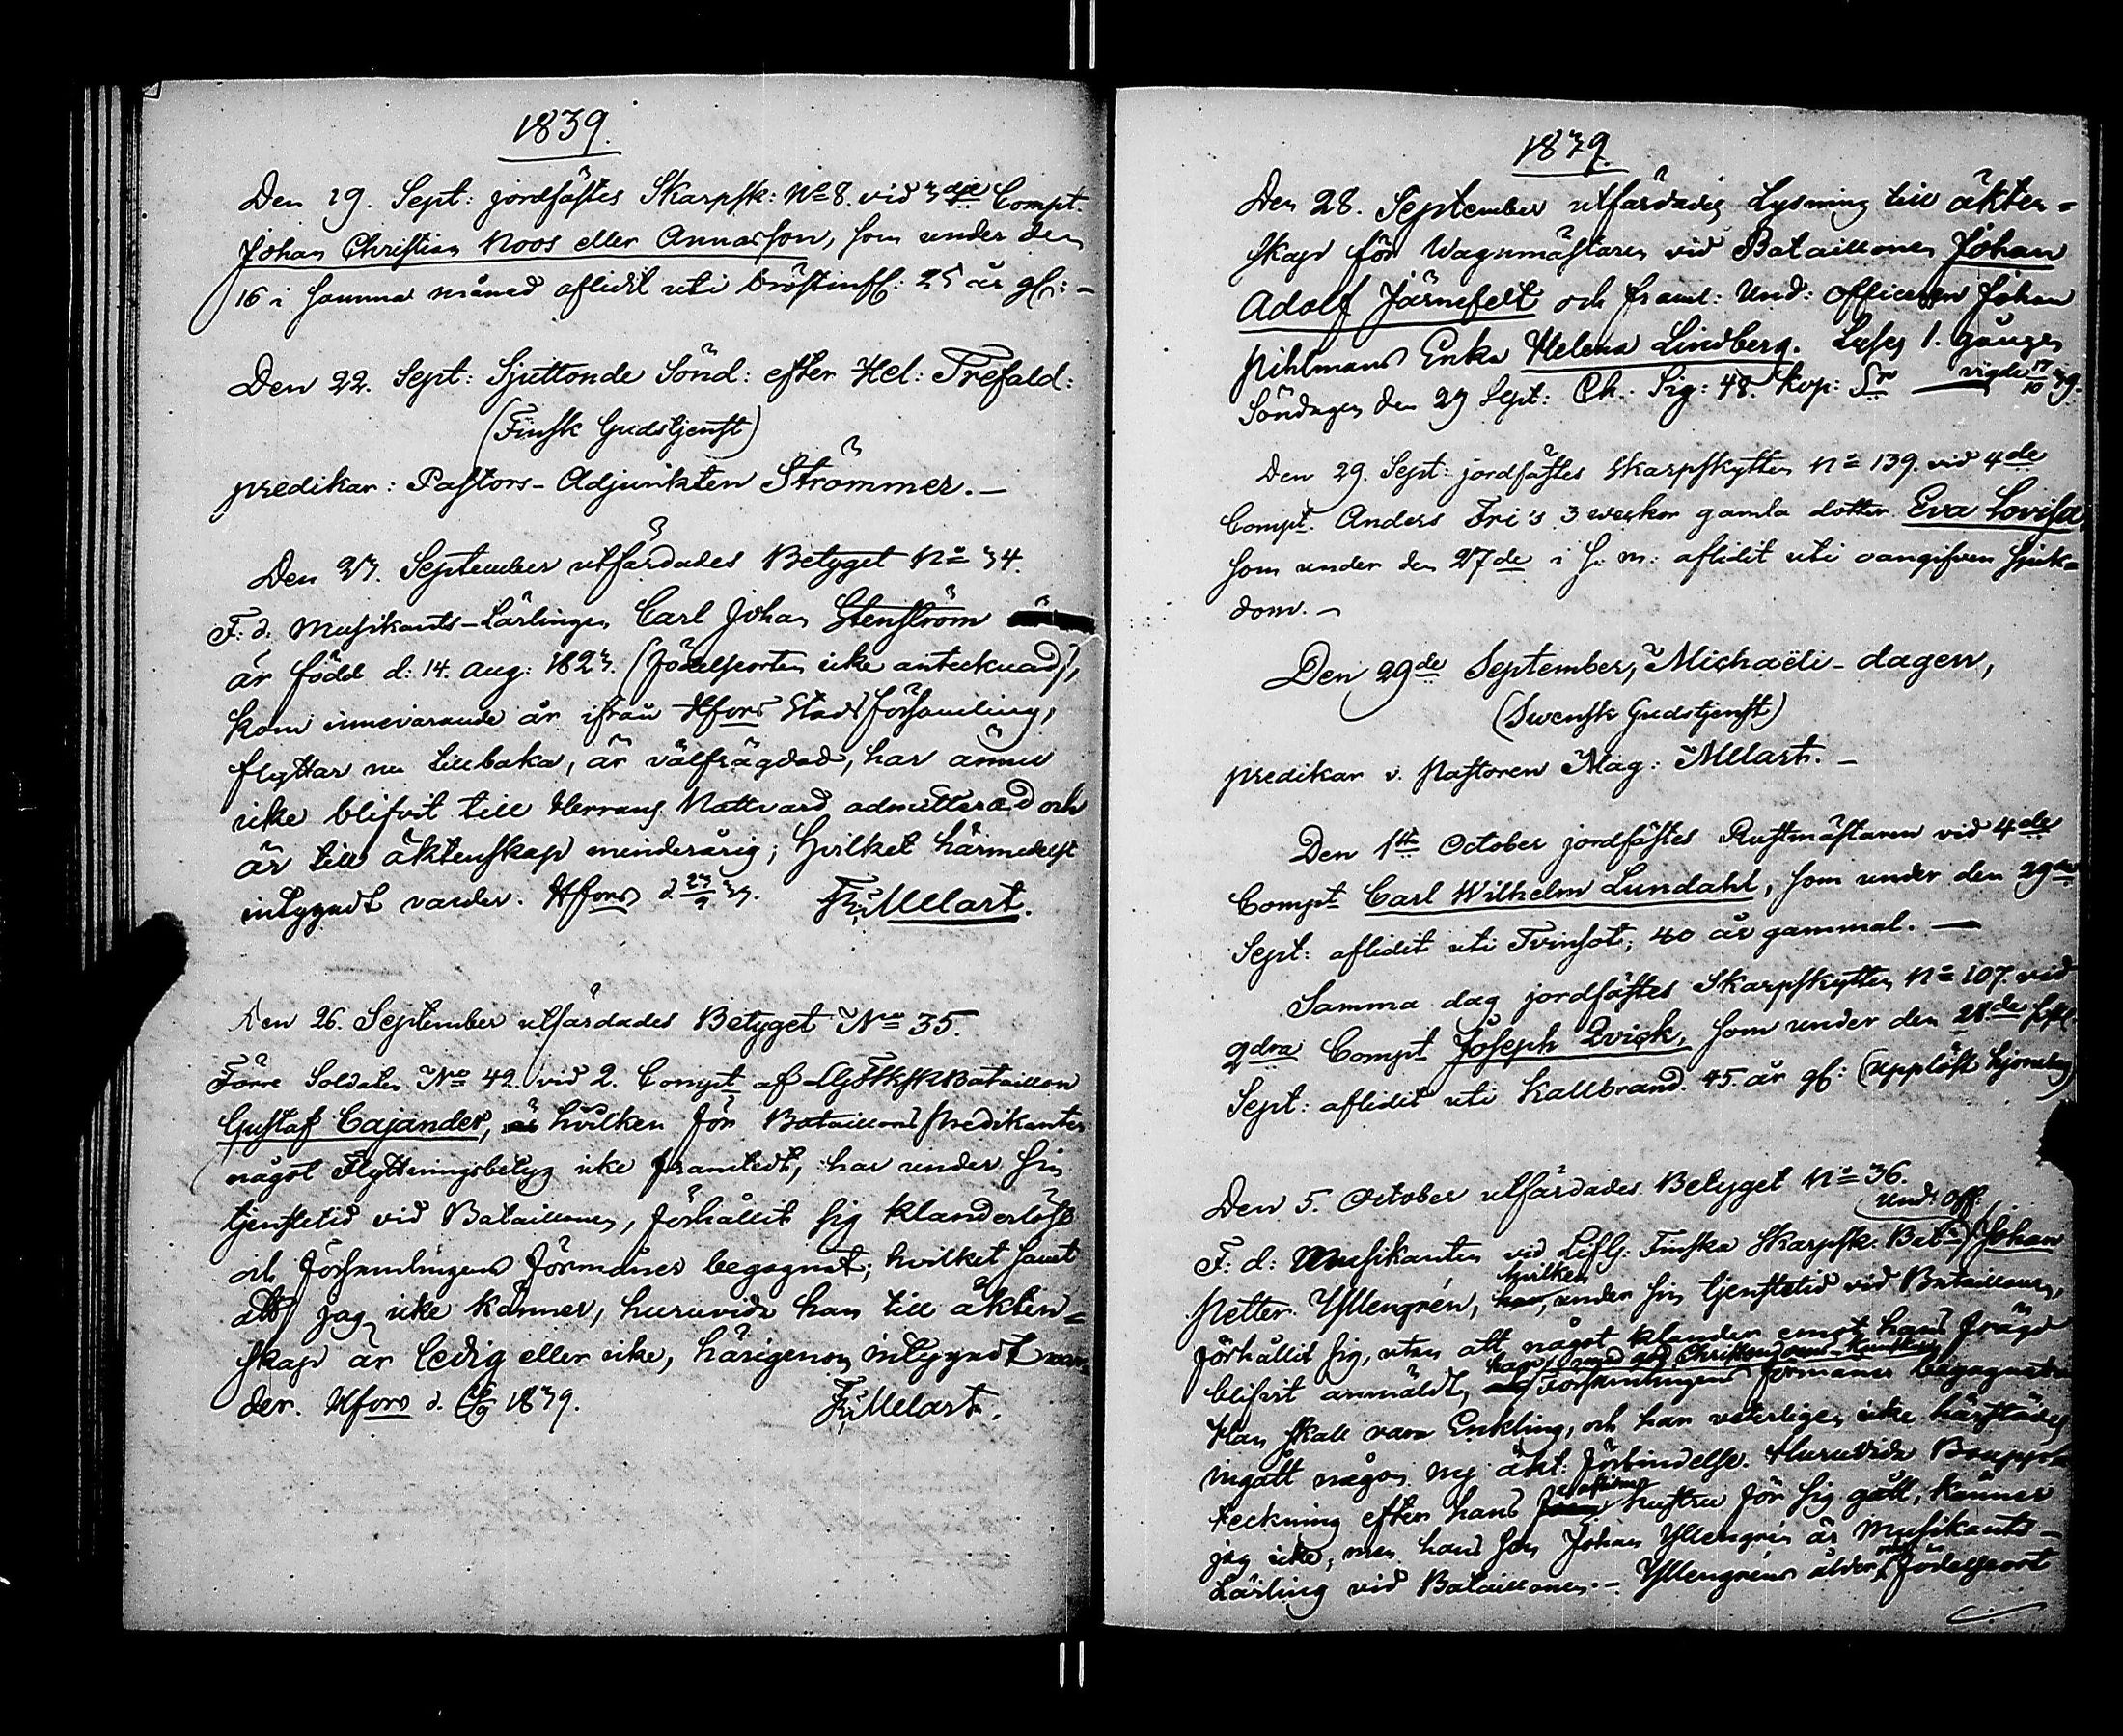 1839.
Den 19. Sept: jordfästes Skarpsk: No 8. vid 3dje Compt.
Johan Christian Roos eller Annasson, som under den
16 i samma månad aflidit uti bröstinfl: 25 år gl: -
Den 22. Sept: Sjuttonde Sönd: efter Hel: Trefald:
(Finsk Gudstjenst)
predikar: Pastors-Adjunkten Strömmer. -
Den 23. September utfärdades Betyget No 34.
F: d. Musikants-Lärlingen Carl Johan Stenström
är född d: 14. Aug: 1823. (födelseorten icke antecknad),
kom innevarande år ifrån Hfors Stads församling,
flyttar nu tillbaka, är välfrägdad, har ännu
icke blifvit till Herrans Nattvard admitterad och
är till äktenskap minderårig; hvilket härmedelst
intygadt varder. Hfors d 23/9 39. Fr: Melart.
Den 26. September utfärdades Betyget No 35.
Förre Soldaten No 42 vid 2. Compt af Bataillon
Gustaf Cajander, hvilken för Bataillons Predikanten
något Flyttningsbetyg icke framtedt, har under sin
tjenstetid vid Bataillonen, förhållit sig klanderlöst
och församlingens förmåner begagnat; hvilket samt
att jag icke känner, huruvida han till äkten=
skap är ledig eller icke, härigenom intygadt var-
der. Hfors d. 26/9 1839. Fr: Melart.
1839.
Den 28. September utfärdades Lysning till äkten=
skap för Wagnmästaren vid Bataillonen Johan
Adolf Järnefelt och framl: Und: officeren Johan
Pihlmans Enka Helena Lindberg. Lyses 1. Gången
Söndagen den 29 Sept: Ch. Sig: 48. kop: Sr vigde 17/10 39.
Den 29. Sept: jordfästes Skarpskytten No 139. vid 4de
Compt. Anders Fri's 3 veckor gamla dotter Eva Lovisa
som under den 27de i s: m: aflidit uti oangifven sjuk=
dom. -
Den 29de September, Michaëli-dagen,
(Swensk Gudstjenst)
predikar v. Pastoren Mag: Melart. -
Den 1sta October jordfästes Rustmästaren vid 4de
Compt Carl Wilhelm Lundahl, som under den 29de
Sept: aflidit uti Tvinsot; 40 år gammal. -
Samma dag jordfästes Skarpskytten No 107. vid
2dra Compt Joseph Qvick, som under den 28de sistl
Sept: aflidit uti Kallbrand. 45 år gl:
Den 5. October utfärdades Betyget No 36.
Und: Off:
F: d: Musikanten vid Lifg: Finska Skarpsk: Batn Johan
Petter Yllengrén, hvilken under sin tjenstetid vid Bataillonen,
förhållit sig, utan att något klander emot hans frägd
blifvit anmäldt, har, med god Christendoms-kunskap Församlingens förmåner begagnat.
Han skall vara Enkling, och har veterligen icke härstädes
ingått någon ny äkt: förbindelse. Huruvida Bouppte
teckning efter hans aflidna hustru för sig gått, känner
jag icke; men hans son Johan Yllengren är Musikants-
Lärling vid Bataillonen. - Yllengréns ålder, födelseort